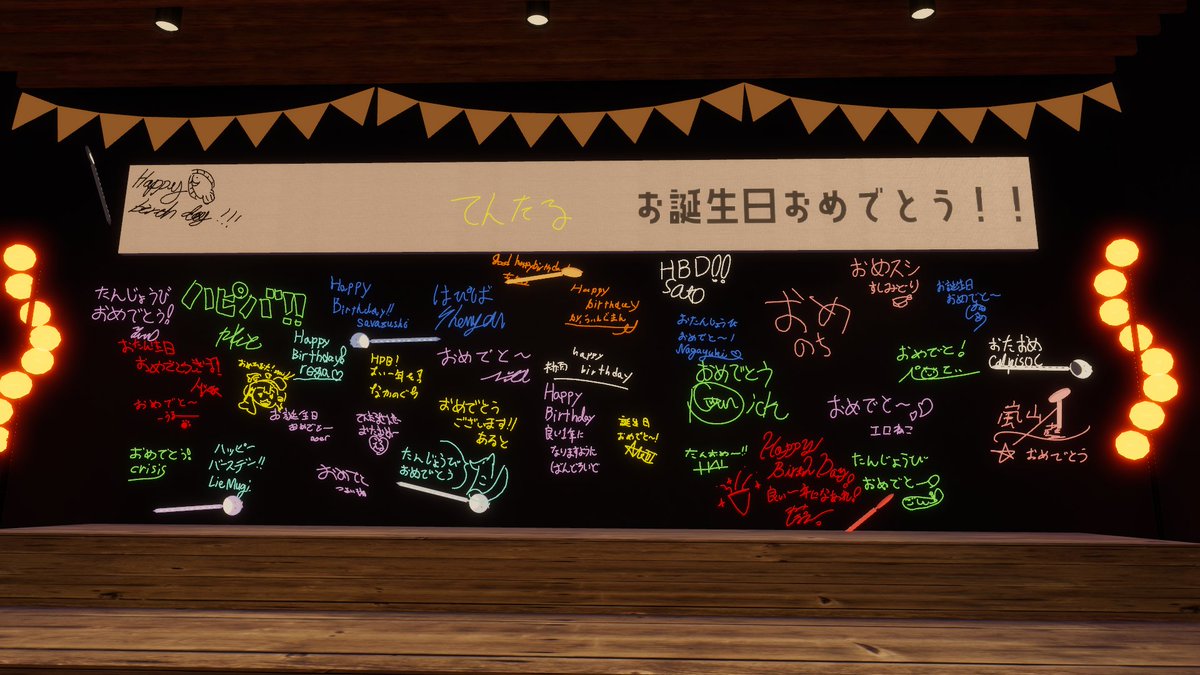 Happy
birth day!!!
てんたる
お誕生日おめでとう！！
たんじょうび
おめでとう！
ハピバ!!
Happy
Birthday!!
savasushi
はぴば
good happy birthday
Happy
birthday
HBD!!
Sato
おめスシ
すしみどり
お誕生日
おめでと〜
おめ
のち
おたんじょうび
おめでと〜！
Nagayuki♡
おたおめ
Calpisoc
おたん生日
おめでとうござい
Happy
Birthday
regia♡
HPB!
おめでと〜
happy
birthday
おめでとう
おめでと！
おめでと〜
お誕生日
おめでと〜
おめでとう
ございます!!
あると
Happy
Birthday
良い1年に
なりますように
誕生日
おめでと〜！
おめでと〜♡
エロねこ
嵐山
☆おめでとう
おめでとう！
crisis
ハッピー
バースデン!!
LieMugi
おめでと
たんじょうび
おめでとう
たんおめー!!
Happy
Birth Day
良い一年になぁれ！
たんじょうび
おめでと〜